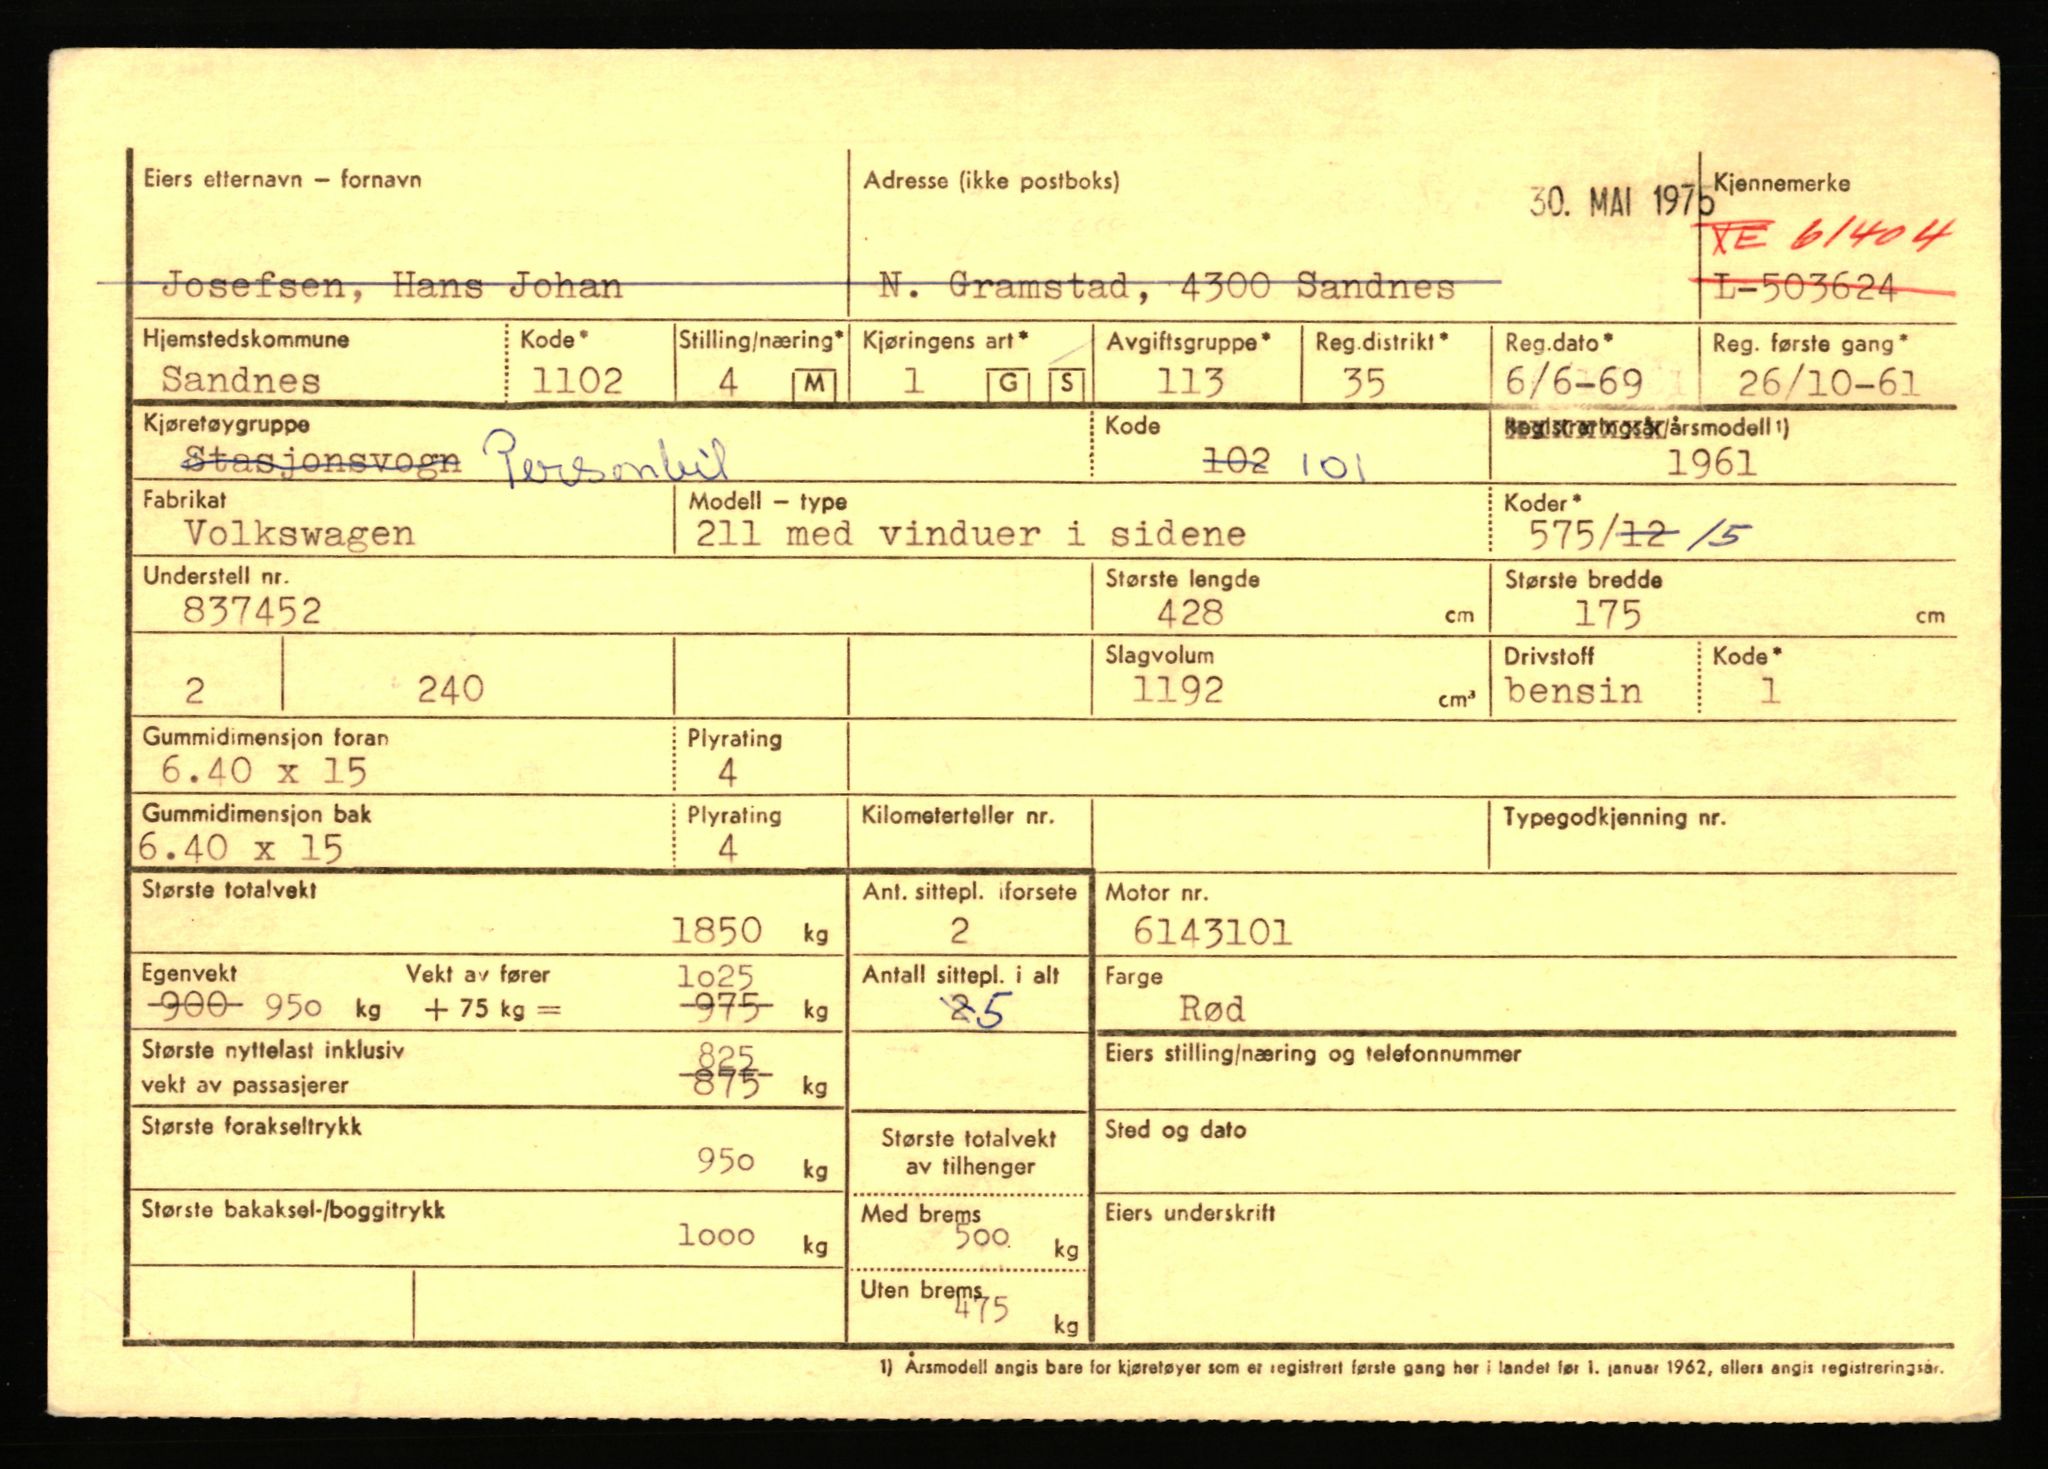 Eiers etternavn – fornavn Adresse (ikke postboks) 30. MAI 1975 Kjennemerke
VE 61404
Josefsen, Hans Johan N. Gramstad, 4300 Sandnes L-503624
Hjemstedskommune Kode* Stilling/næring* Kjøringens art* Avgiftsgruppe* Reg.distrikt* Reg.dato* Reg. første gang*
Sandnes 1102 4 M 1 G S 113 35 6/6-69 26/10-61
Kjøretøygruppe Kode Registreringsår/årsmodell 1)
Stasjonsvogn Personbil 102 101 1961
Fabrikat Modell – type Koder*
Volkswagen 211 med vinduer i sidene 575/12 /5
Understell nr. Største lengde Største bredde
837452 428 cm 175 cm
Slagvolum Drivstoff Kode*
2 240 1192 cm³ bensin 1
Gummidimensjon foran Plyrating
6.40 x 15 4
Gummidimensjon bak Plyrating Kilometerteller nr. Typegodkjenning nr.
6.40 x 15 4
Største totalvekt Ant. sittepl. iforsete Motor nr.
1850 kg 2 6143101
Egenvekt Vekt av fører 1025 Antall sittepl. i alt Farge
900 950 kg + 75 kg = 975 kg 2 5 Rød
Største nyttelast inklusiv 825 Eiers stilling/næring og telefonnummer
vekt av passasjerer 875 kg
Største forakseltrykk Største totalvekt Sted og dato
950 kg av tilhenger
Største bakaksel-/boggitrykk Med brems Eiers underskrift
1000 kg 500 kg
Uten brems
475 kg
1) Årsmodell angis bare for kjøretøyer som er registrert første gang her i landet før 1. januar 1962, ellers angis registreringsår.